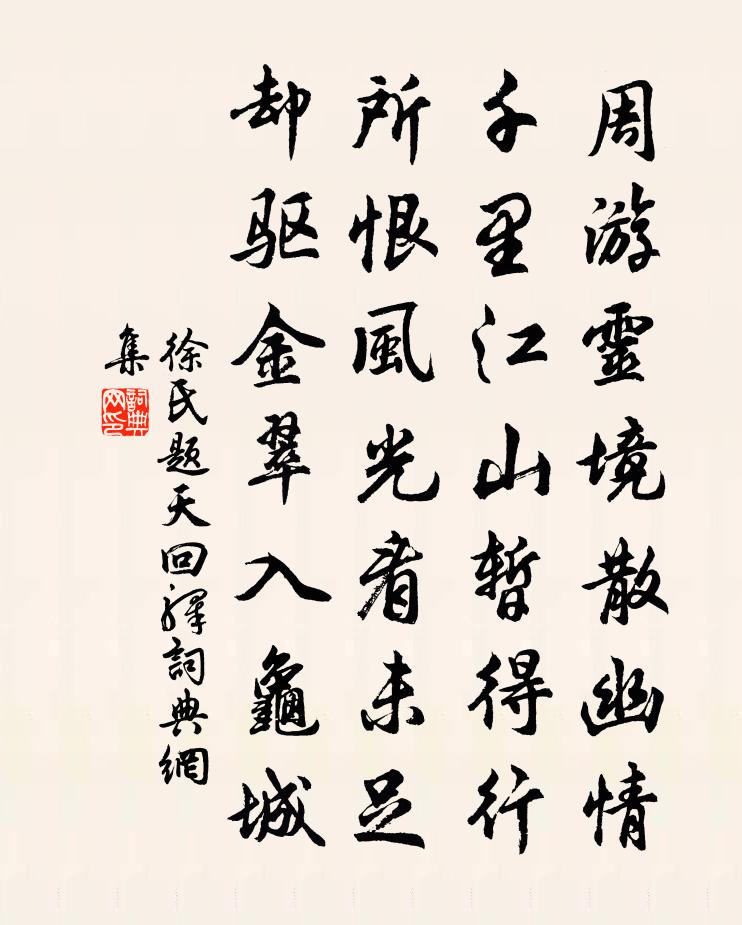 周游靈境散幽情
千里江山暫得行
所恨風光看未足
却驱金翠入龜城
徐氏题天回驿詞典網
集
詞典
网印